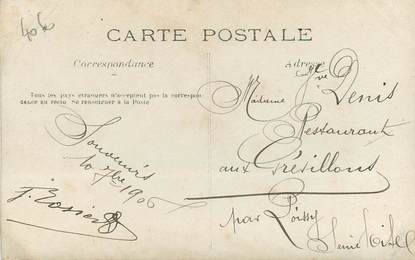 406
CARTE POSTALE
Correspondance
Adresse
Tous les pays étrangers n'acceptent pas la correspon-
dance au recto Se renseigner à la Poste
Souvenirs
10 7bre 1906
Madame Vve Denis
Restaurant
aux Grésillons
par Poissy
Seine et Oise